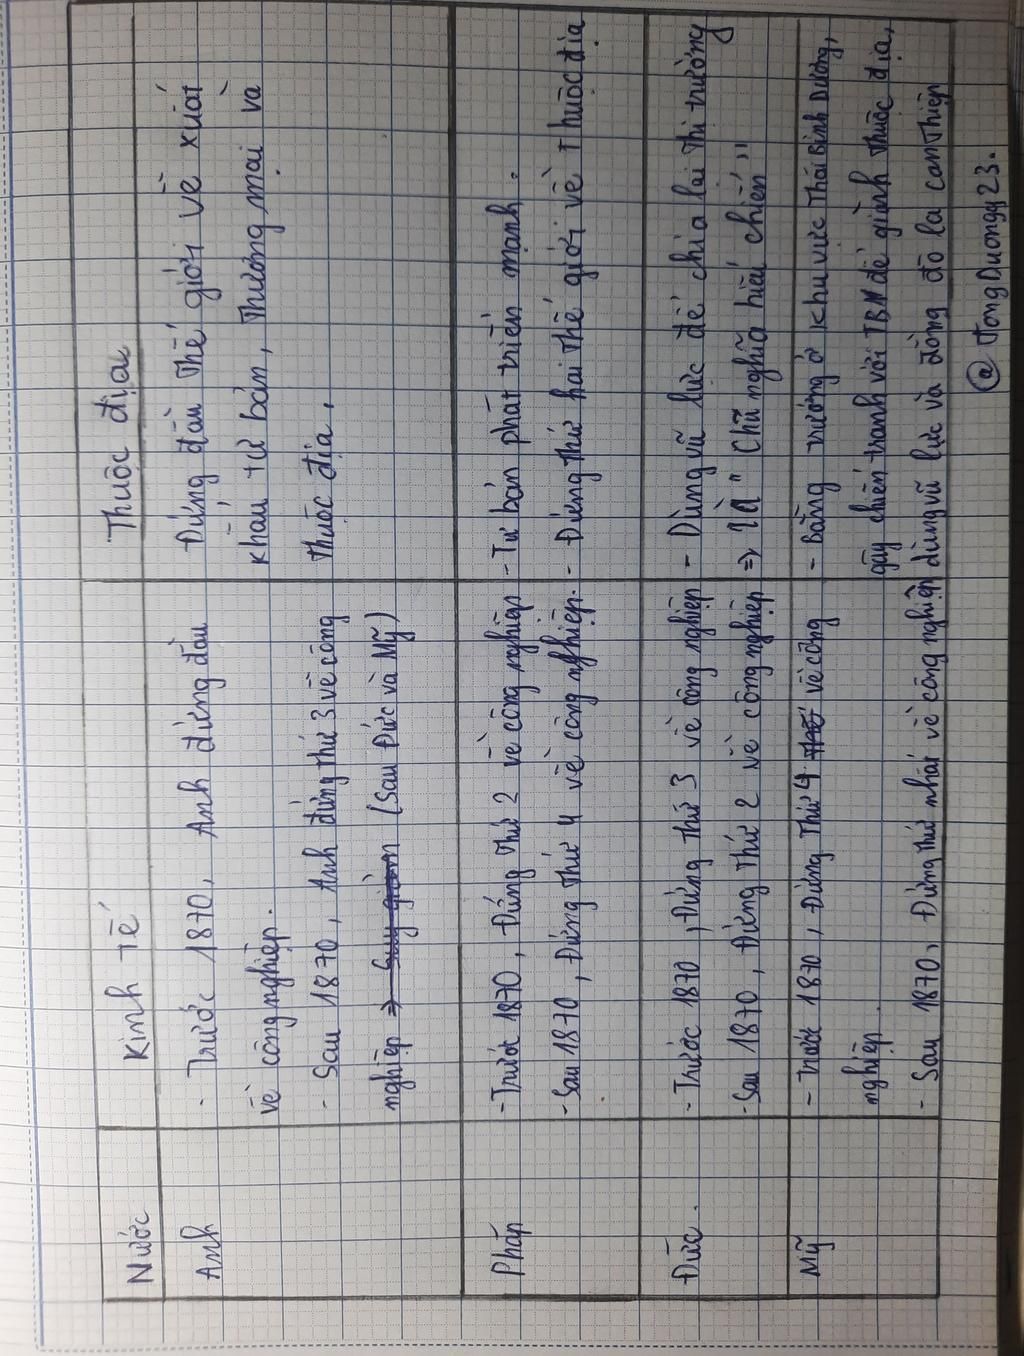 Nước
Kinh tế
Thuộc địa
Anh
- Trước 1870, Anh đứng đầu
về công nghiệp.
- Sau 1870, Anh đứng thứ 3 về công
nghiệp (sau Đức và Mỹ)
Đứng đầu thế giới về xuất
khẩu tư bản, thương mại và
thuộc địa.
Pháp
- Trước 1870, Đứng thứ 2 về công nghiệp
- Sau 1870, Đứng thứ 4 về công nghiệp.
- Tư bản phát triển mạnh.
- Đứng thứ hai thế giới về thuộc địa
Đức.
- Trước 1870, Đứng thứ 3 về công nghiệp
- Sau 1870, Đứng thứ 2 về công nghiệp
- Dùng vũ lực để chia lại thị trường
=> là "Chủ nghĩa hiếu chiến"
Mỹ
- Trước 1870, Đứng thứ 4 về công
nghiệp.
- Sau 1870, Đứng thứ nhất về công nghiệp
- Bằng trướng ở khu vực Thái Bình Dương,
gây chiến tranh với TBN để giành thuộc địa,
dùng vũ lực và đồng đô la can thiệp
@TongDuongy23.